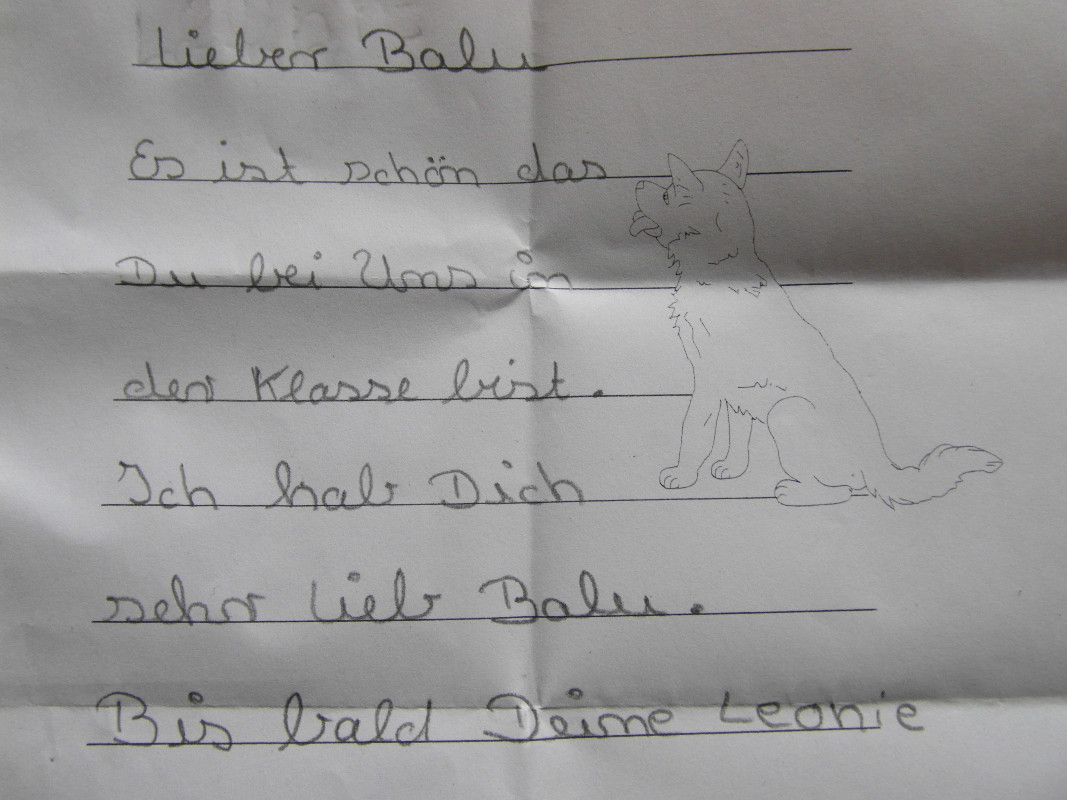 Lieber Balu
Es ist schön das
Du bei Uns in
der Klasse bist.
Ich hab Dich
sehr Lieb Balu.
Bis bald Deine Leonie